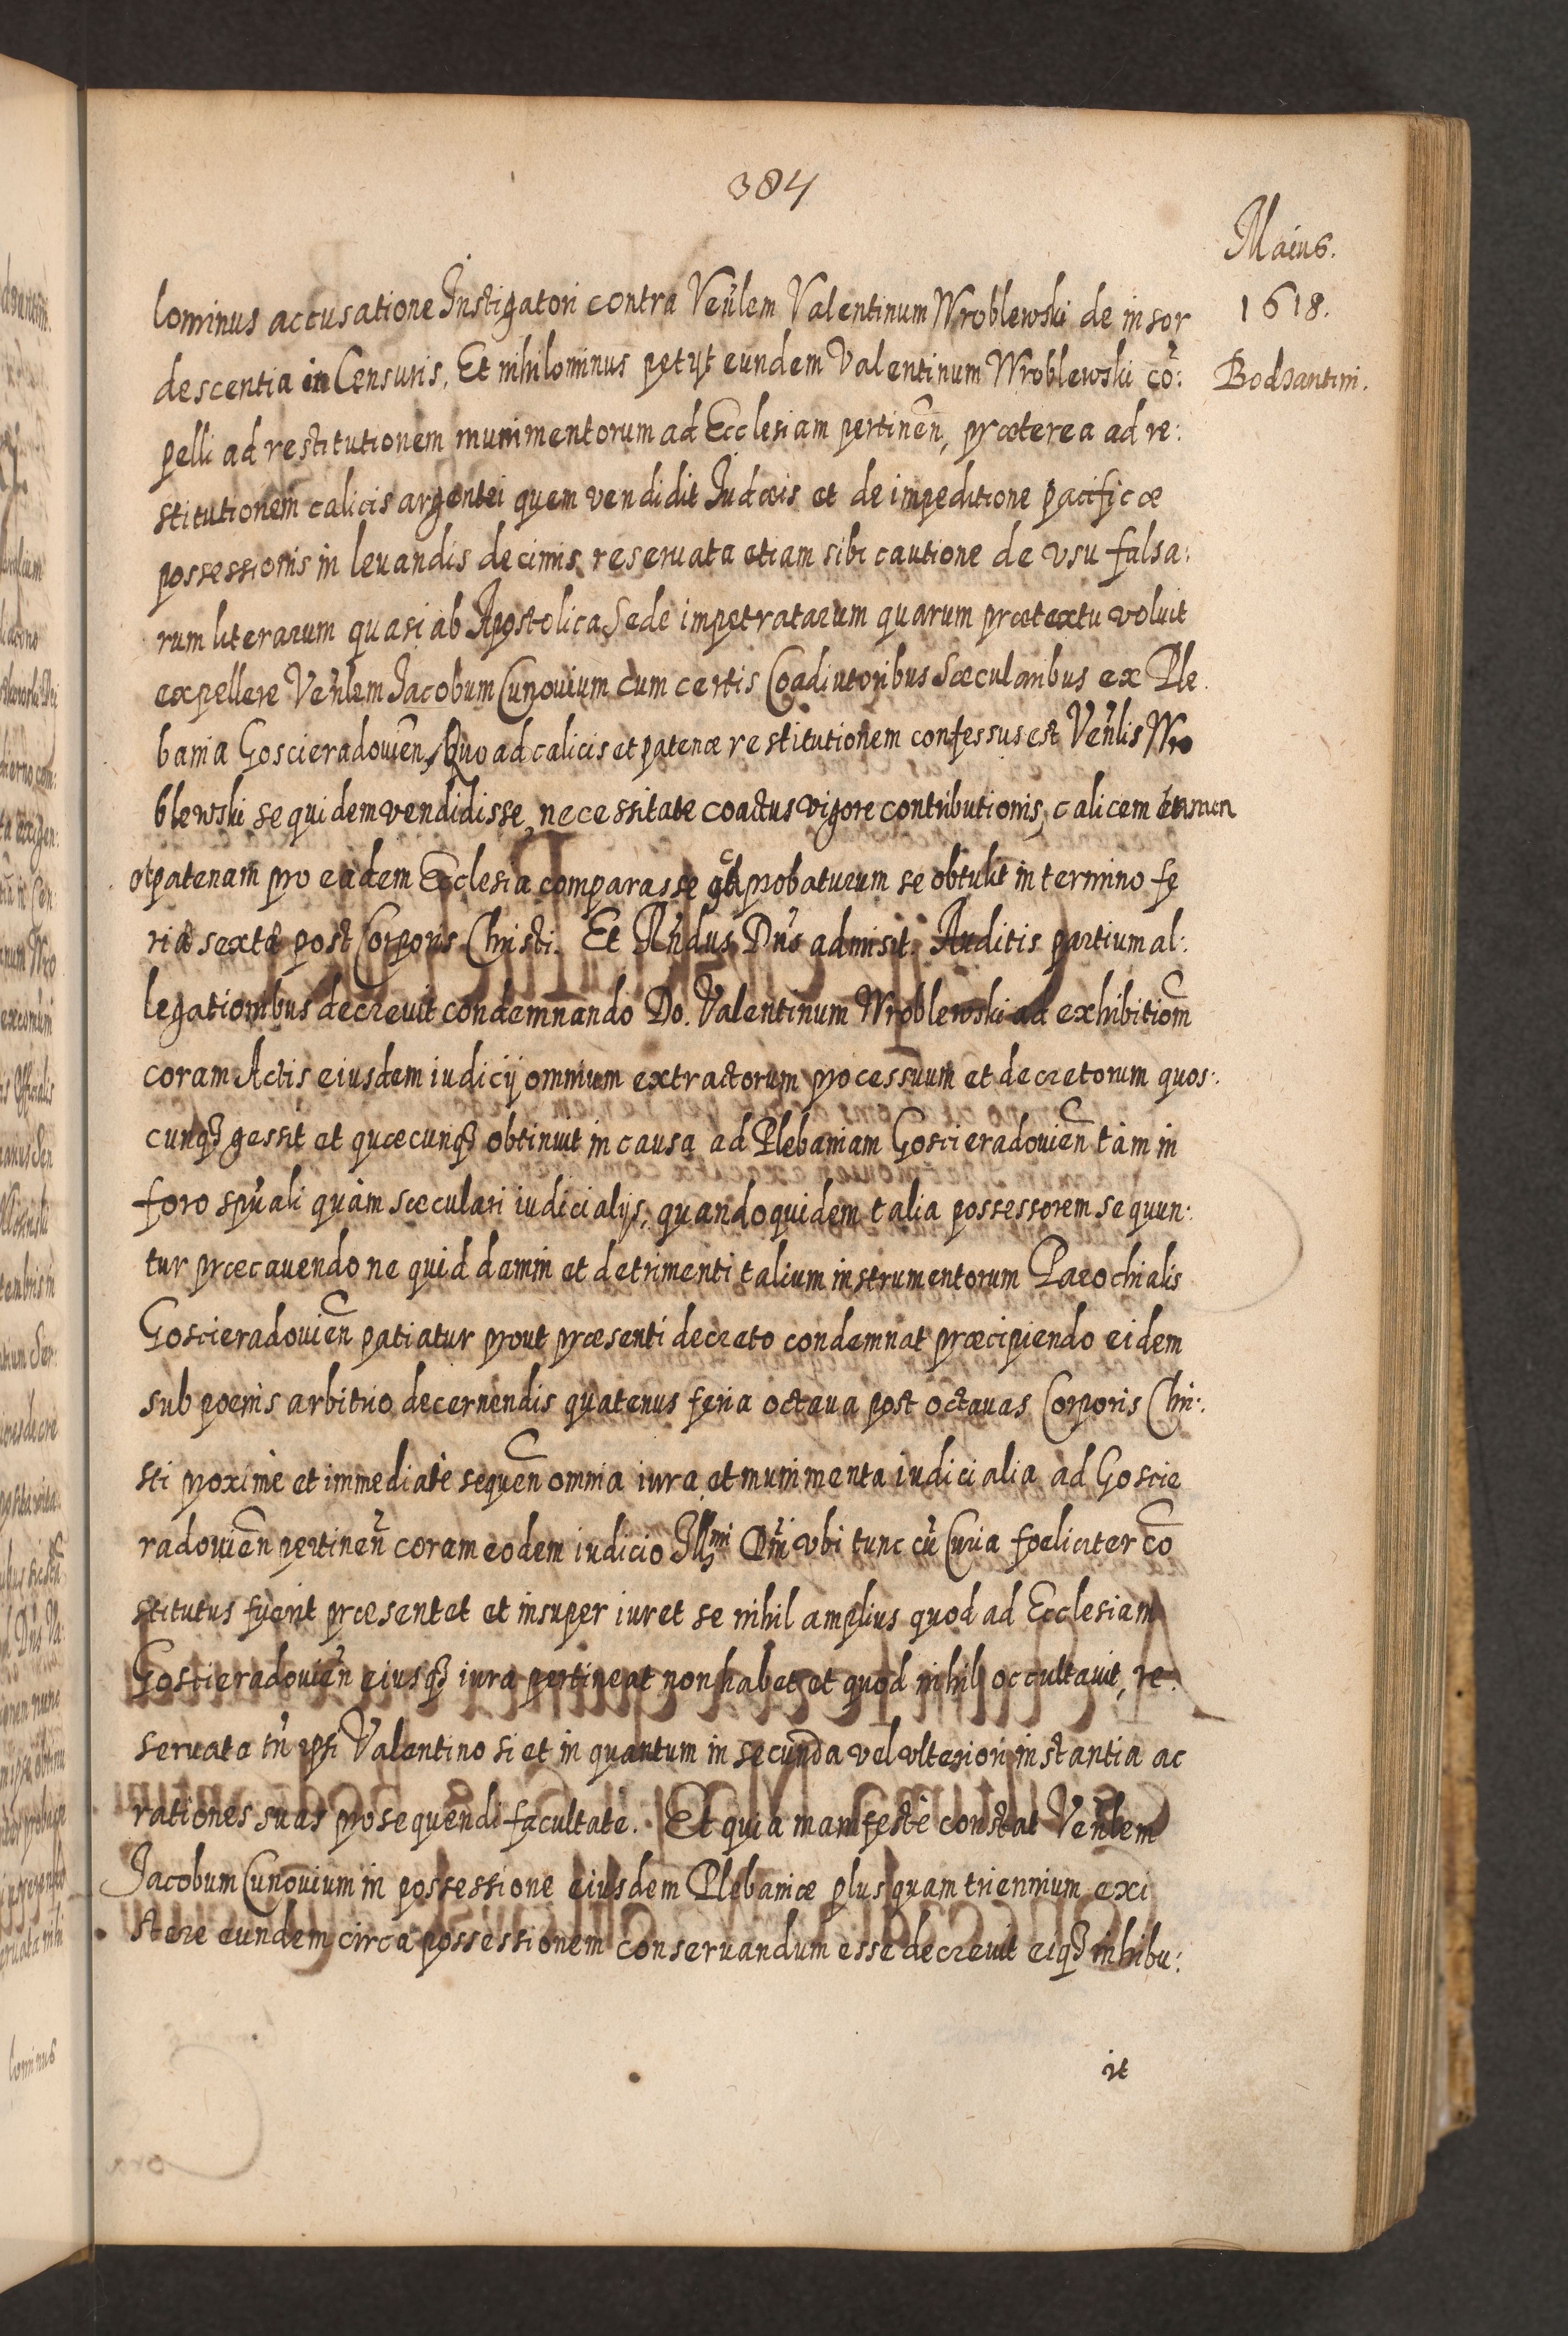 384
Maius.
1618.
Bodzantini.
lominus accusatione Instigatori contra Ven̄lem Valentinum Wroblewski de insor
descentia in Censuris. Et nihilominus petijt eundem Valentinum Wroblewski cō:
pelli ad restitutionem munimentorum ad Ecclesiam pertinen̄, præterea ad re:
stitutionem calicis argentei quem vendidit Iudæis et de impeditione pacificæ
possessionis in leuandis decimis, reseruata etiam sibi cautione de vsu falsa:
rum literarum quasi ab Apostolica Sede impetratarum quarum prætextu voluit
expellere Ven̄lem Jacobum Cunouium cum certis Coadiutoribus Sæcularibus ex Ple
bania Goscieradouien̄, Quo ad calicis et patenæ restitutionem confessus est Ven̄lis Wro
blewski se quidem vendidisse, necessitate coactus vigore contributionis, calicem tamen
et patenam pro eadem Ecclesia comparasse qd̄ probaturum se obtulit in termino fe
riæ sextæ post Corporis Christi. Et Rn̄dus Dn̄s admisit. Auditis partium al:
legationibus decreuit condemnando Do. Valentinum Wroblewski ad exhibitiom̄
coram Actis eiusdem iudicij omnium extractorum processuum et decretorum quos:
cunqȝ gessit et quæcunqȝ obtinuit in causa ad Plebaniam Goscieradouien̄ tàm in
foro spūali quàm sæculari iudicialijs, quandoquidem talia possessorem sequun:
tur præcauendo ne quid damni et detrimenti talium instrumentorum Parochialis
Goscieradouien̄ patiatur prout præsenti decreto condemnat præcipiendo eidem
sub poenis arbitrio decernendis quatenus feria octaua post octauas Corporis Chri:
sti proximè et immediatè sequen̄ omnia iura et munimenta iudicialia ad Goscie
radouien̄ pertinen̄ coram eodem iudicio Illmi Dn̄i vbi tunc cū Curia foeliciter cō
stitutus fuerit præsentet et insuper iuret se nihil amplius quod ad Ecclesiam
Goscieradouien̄ eiusqȝ iura pertineat non habet et quod nihil occultauit, re
seruata tn̄ ipsi Valentino si et in quantum in secunda vel vlteriori instantia ac
rationes suas prosequendi facultate. Et quia manifestè constat Ven̄lem
Jacobum Cunouium in possessione eiusdem Plebaniæ plus quam triennium exi
stere eundem circa possessionem conseruandum esse decreuit eiqȝ inhibu:
it